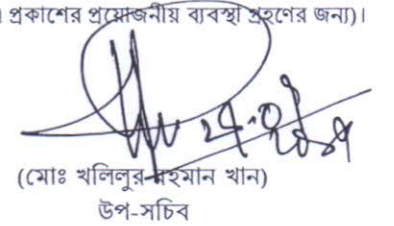 প্রকাশের প্রয়োজনীয় ব্যবস্থা গ্রহণের জন্য)।
(মোঃ খলিলুর রহমান খান)
উপ-সচিব